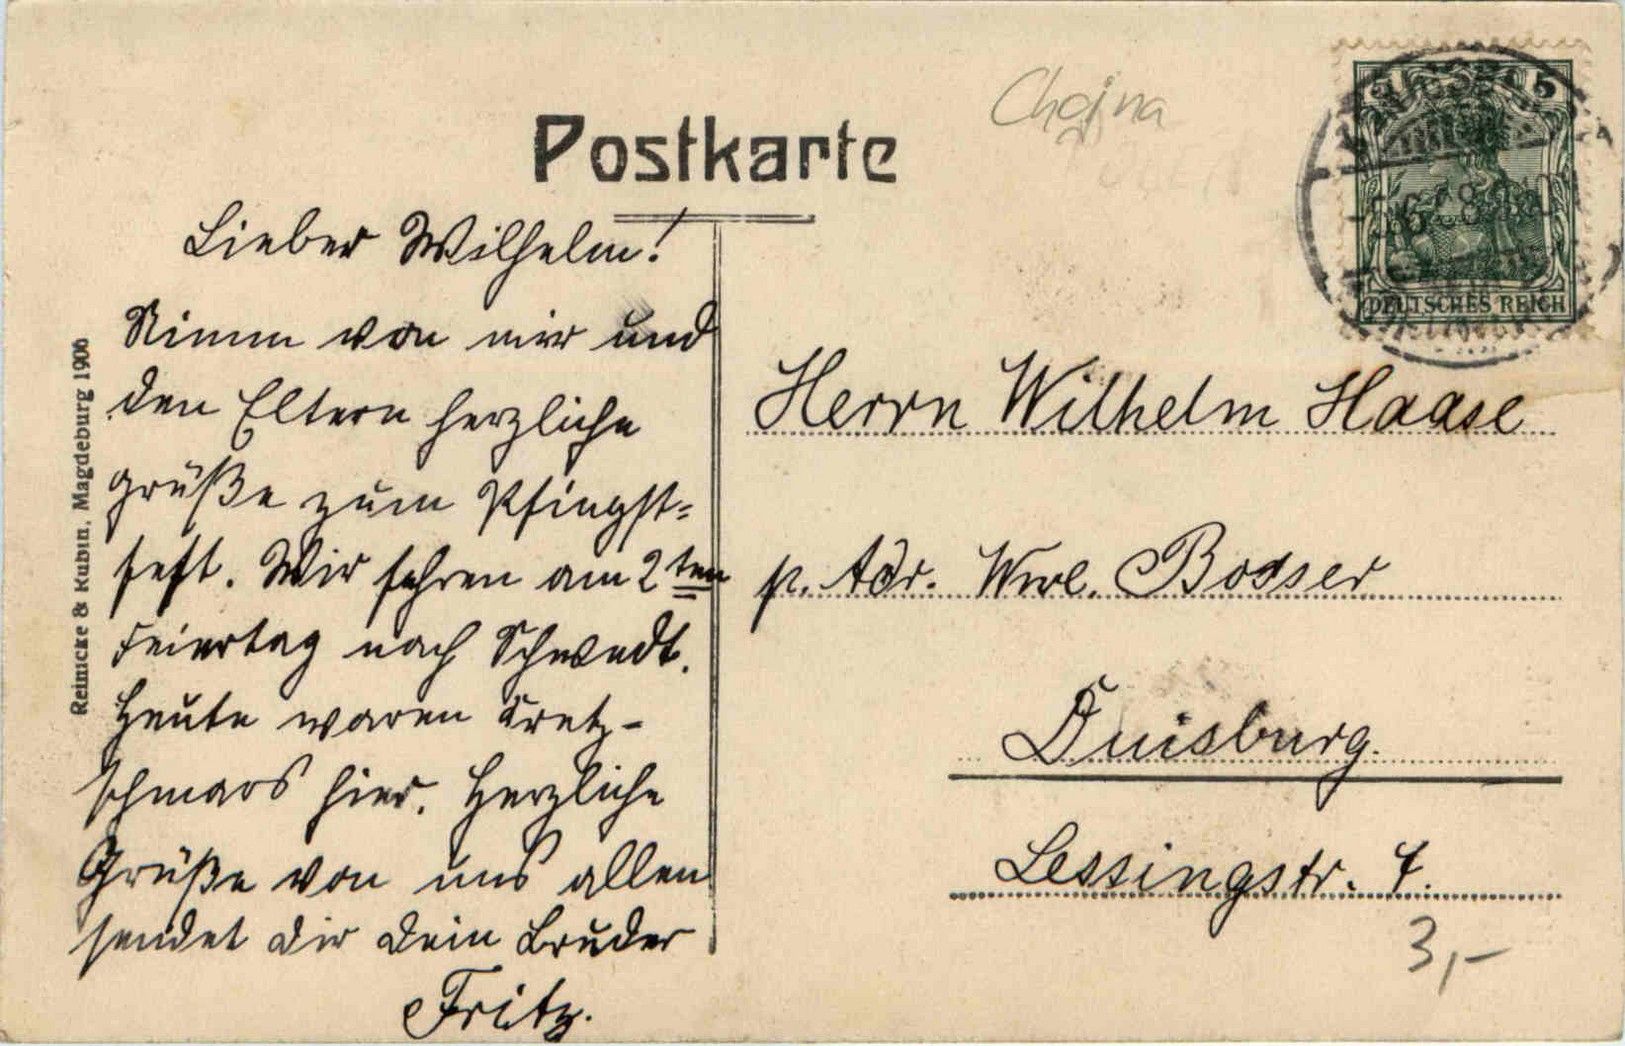 Postkarte
Chojna
5
DEUTSCHES REICH
Lieber Wilhelm!
Nimm von mir und
den Eltern herzliche
Grüße zum Pfingst=
fest. Wir fahren am 2ten
Feiertag nach Schwedt.
Heute waren Kretz-
schmars hier. Herzliche
Grüße von uns allen
sendet dir dein Bruder
Fritz.
Herrn Wilhelm Haase
p. Adr. Wwe. Bosser
Duisburg.
Lessingstr. 7.
3,-
Reinicke & Rubin, Magdeburg 1906